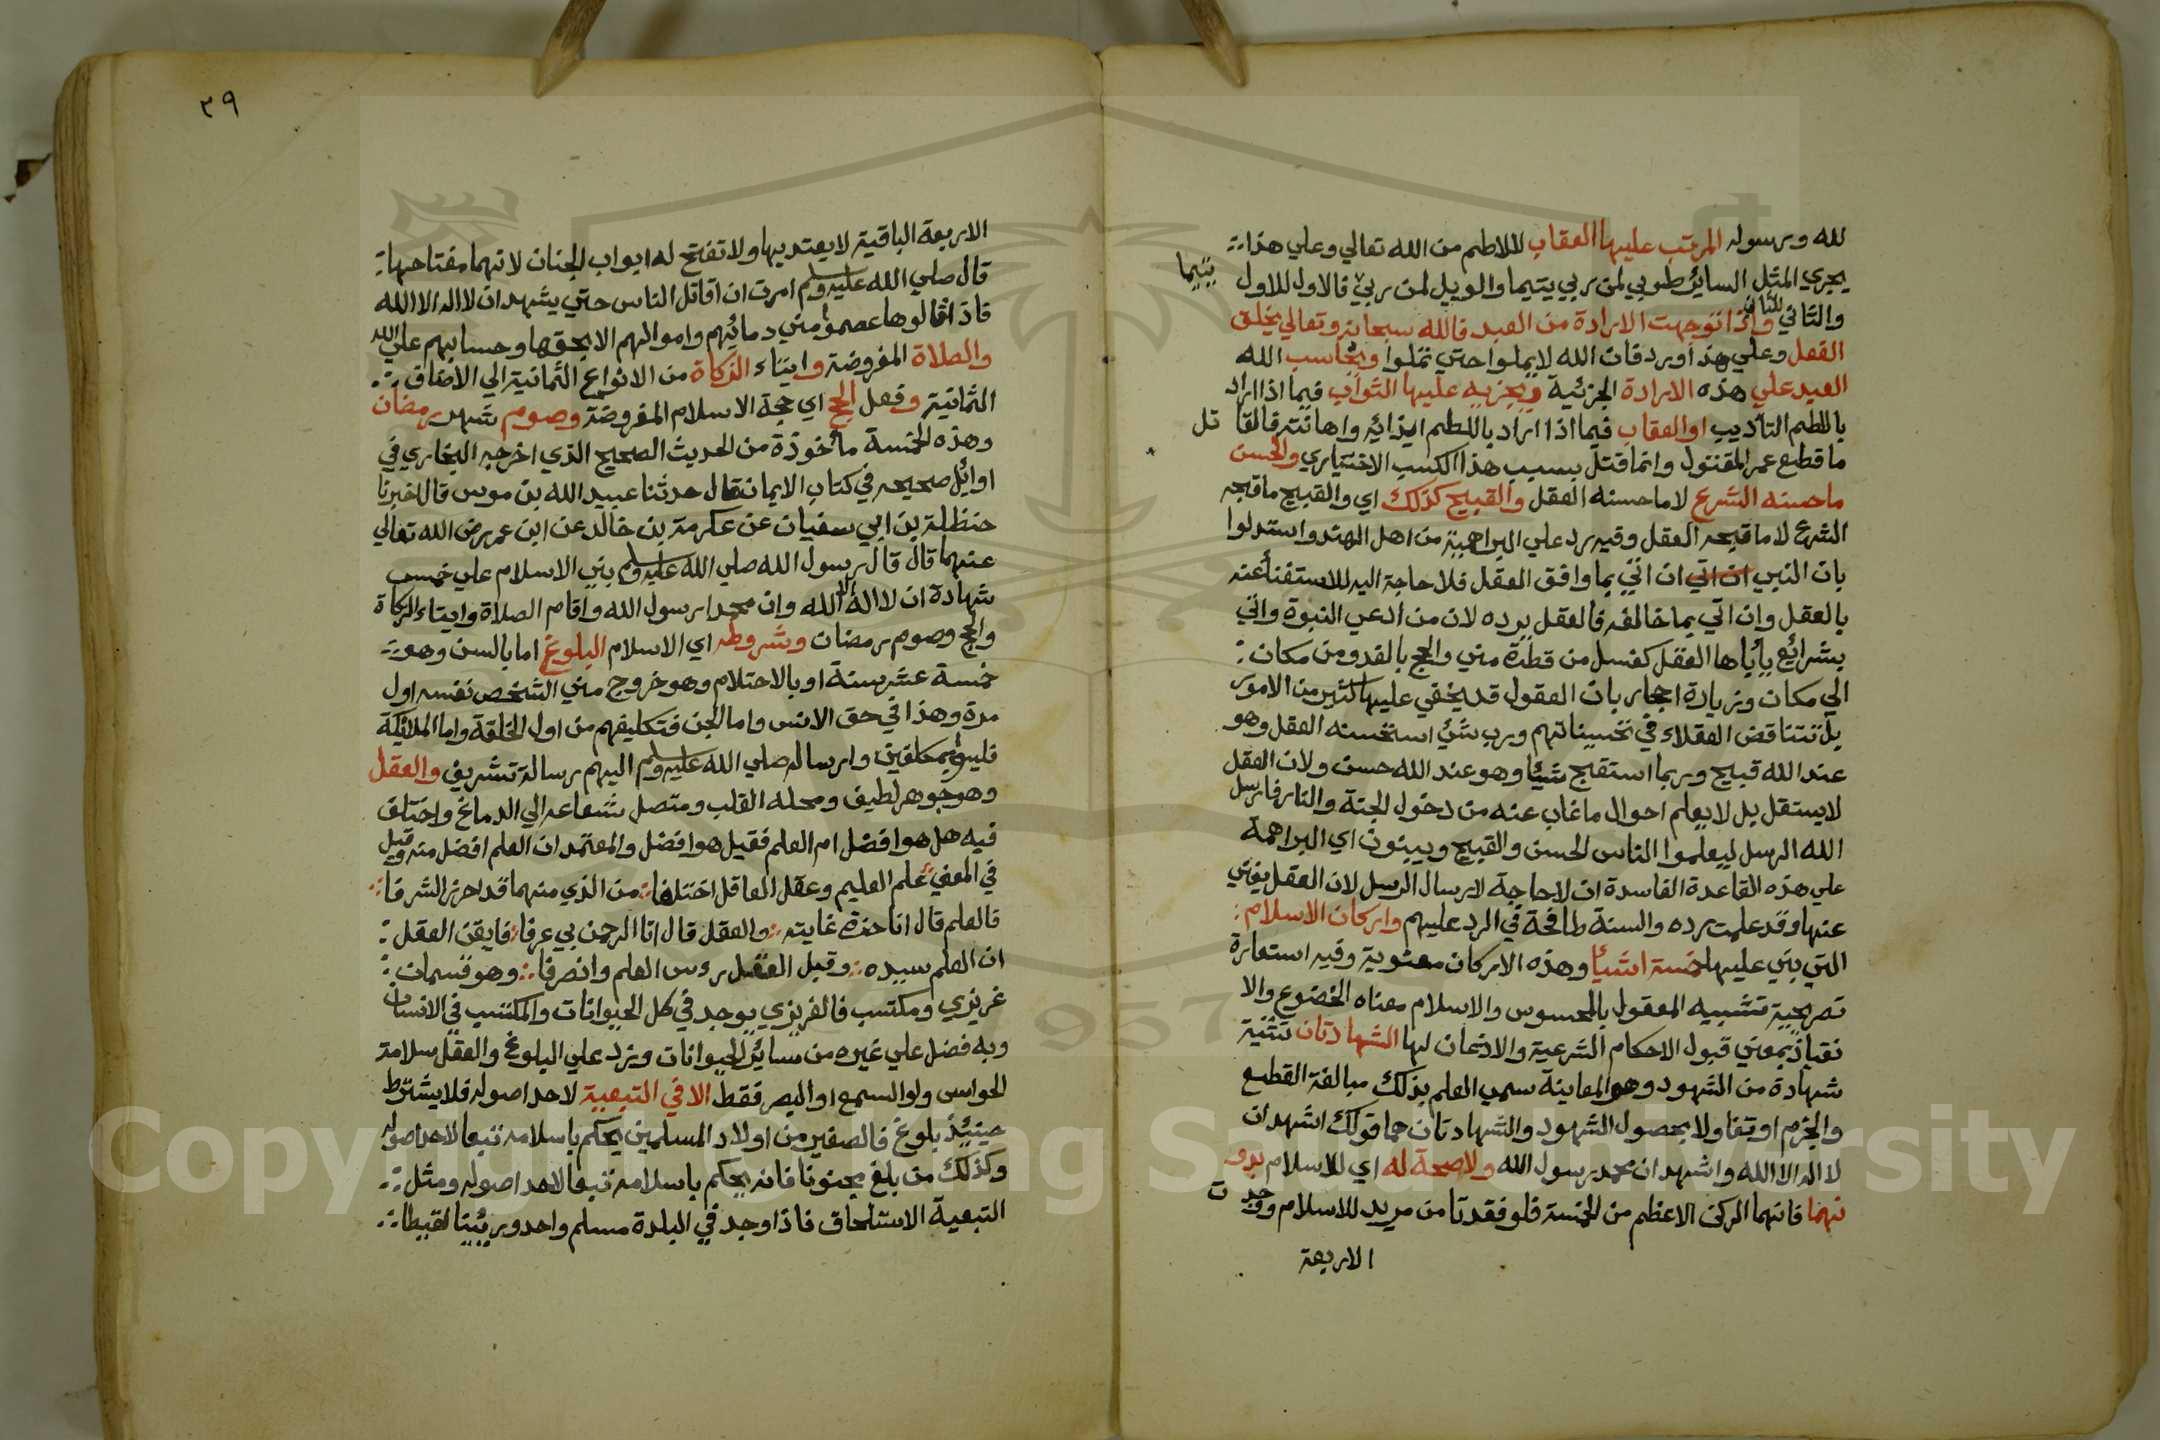 لله ورسوله المرتب عليها العقاب للاطم من الله تعالي وعلي هذا
يجري المثل الساير طوبي لمن ربي يتيما والويل لمن ربي فالاول للاول يتيما
والثاني للثاني واذا توجهت الارادة من العبد فالله سبحانه وتعالي يخلق
الفعل وعلي هذا ورد فان الله لا يملوا حتي تملوا ويحاسب الله
العبد علي هذه الارادة الجزئية ويجزيه عليها الثواب فيما اذا اراد
باللطم التأديب او العقاب فيما اذا اراد باللطم ايذائه واهانته فالقاتل
ما قطع عمر المقتول وانما قتل بسبب هذا الكسب الاختياري والحسن
ما حسنه الشرع لا ما حسنه العقل والقبيح كذلك اي والقبيح ما قبحه
الشرع لا ما قبحه العقل وفيه رد علي البراهمة من اهل الهند واستدلوا
بان النبي ان اتي ان اتي بما وافق العقل فلا حاجة اليه للاستغنأ عنه
بالعقل وان اتي بما خالفه فالعقل يرده لان من ادعي النبوة واتي
بشرائع يأباها العقل كغسل من قطرة مني والحج بالغدو من مكان
الي مكان وزيارة احجار بان العقول قد يخفي عليها كثير من الامور
بل تتناقض العقلاء في تحسيناتهم ورب شئ استحسنه العقل وهو
عند الله قبيح وربما استقبح شيئا وهو عند الله حسن ولان العقل
لا يستقل بل لا يعلم احوال ما غاب عنه من دخول الجنة والنار فارسل
الله الرسل ليعلموا الناس الحسن والقبيح ويبنون اي البراهمة
علي هذه القاعدة الفاسدة ان لا حاجة لارسال الرسل لان العقل يغني
عنها وقد علمت رده والسنة طافحة في الرد عليهم واركان الاسلام
التي بني عليها خمسة اشيأ وهذه الاركان معنوية وفيه استعارة
تصريحية تشبيه المعقول بالمحسوس والاسلام معناه الخضوع والا
نقياد بمعني قبول الاحكام الشرعية والاذعان لها الشهادتان تثنية
شهادة من الشهود وهو المعاينة سمي العلم بذلك مبالغة القطع
والجزم او تفاولا بحصول الشهود والشهادتان هما قولك اشهد ان
لا اله الا الله واشهد ان محمد رسول الله ولا صحة له اي للاسلام بدو
نهما فانهما الركن الاعظم من الخمسة فلو فقدتا من مريد للاسلام وجدت
الاربعة
٣٩
الاربعة الباقية لا يعتد بها ولا تفتح له ابواب الجنان لانهما مفتاحها
قال صلي الله عليه وسلم امرت ان اقاتل الناس حتي يشهد ان لا اله الا الله
فاذا قالوها عصموا مني دمائهم واموالهم الا بحقها وحسابهم علي الله
والصلاة المفروضة وايتاء الزكاة من الانواع الثمانية الي الاصناف
الثمانية وفعل الحج اي حجة الاسلام المفروضة وصوم شهر رمضان
وهذه الخمسة مأخوذة من الحديث الصحيح الذي اخرجه البخاري في
اوائل صحيحه في كتاب الايمان فقال حدثنا عبيد الله بن موسي قال اخبرنا
حنظلة بن ابي سفيان عن عكرمة بن خالد عن ابن عمر رضي الله تعالي
عنهما قال قال رسول الله صلي الله عليه وسلم بني الاسلام علي خمس
شهادة ان لا اله الا الله وان محمدا رسول الله واقام الصلاة وايتاء الزكاة
والحج وصوم رمضان وشروطه اي الاسلام البلوغ اما بالسن وهو
خمسة عشر سنة او بالاحتلام وهو خروج مني الشخص نفسه اول
مرة وهذا في حق الانس واما الجن فتكليفهم من اول الخلقة واما الملائكة
فليسوا بمكلفين وارساله صلي الله عليه وسلم اليهم رسالة تشريف والعقل
وهو جوهر لطيف ومحله القلب ومتصل شعاعه الي الدماغ واختلف
فيه هل هو افضل ام العلم فقيل هو افضل والمعتمد ان العلم افضل منه وقيل
في المعني علم العليم وعقل العاقل اختلفا من الذي منهما قد احرز الشرفا
فالعلم قال انا حزت غايته والعقل قال انا الرحمن بي عرفا فايقن العقل
ان العلم سيده وقبل العقل رءس العلم وانصرفا وهو قسمان
غريزي ومكتسب فالغريزي يوجد في كل الحيوانات والمكتسب في الانسان
وبه فضل علي غيره من ساير الحيوانات وزد علي البلوغ والعقل سلامة
الحواس ولو السمع او البصر فقط الا في التبعية لاحد اصوله فلا يشترط
حينئذ بلوغ فالصغير من اولاد المسلمين يحكم باسلامه تبعا لاحد اصوله
وكذلك من بلغ مجنونا فانه يحكم باسلامه تبعا لاحد اصوله ومثل
التبعية الاستلحاق فاذا وجد في البلدة مسلم واحد ورئينا لقيطا
Copyright © King Saud University
1957